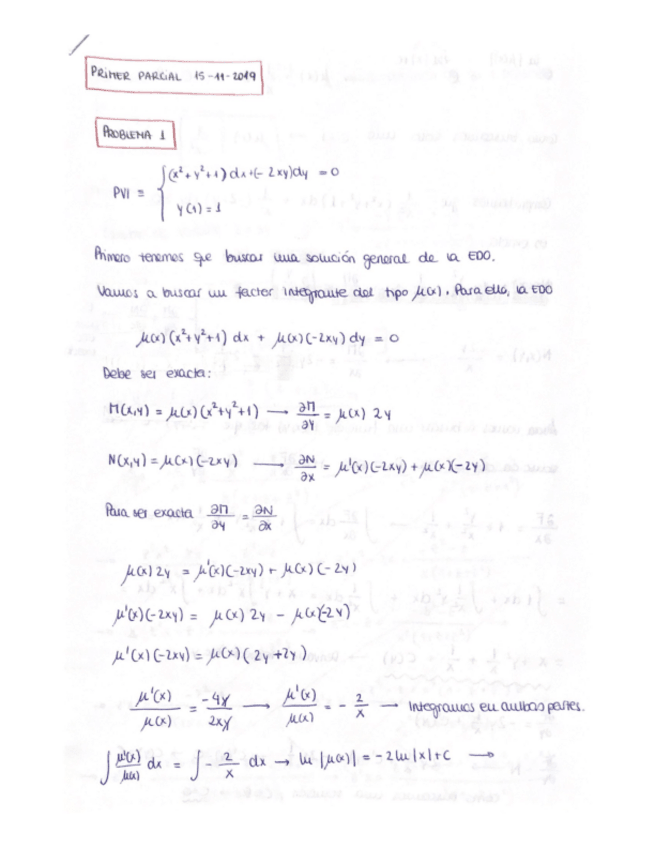 PRIMER PARCIAL 15-11-2019
PROBLEMA 1
PVI ≡ { (x²+y²+1) dx + (-2xy) dy = 0
y(1) = 1
Primero tenemos que buscar una solución general de la EDO.
Vamos a buscar un factor integrante del tipo μ(x). Para ello, la EDO
μ(x)(x²+y²+1) dx + μ(x)(-2xy) dy = 0
Debe ser exacta:
M(x,y) = μ(x)(x²+y²+1) → ∂M/∂y = μ(x) 2y
N(x,y) = μ(x)(-2xy) → ∂N/∂x = μ'(x)(-2xy) + μ(x)(-2y)
Para ser exacta ∂M/∂y = ∂N/∂x
μ(x) 2y = μ'(x)(-2xy) + μ(x)(-2y)
μ'(x)(-2xy) = μ(x) 2y - μ(x)(-2y)
μ'(x)(-2xy) = μ(x)(2y+2y)
μ'(x)/μ(x) = -4y/2xy → μ'(x)/μ(x) = -2/x → Integramos en ambas partes.
∫ μ'(x)/μ(x) dx = ∫ -2/x dx → ln |μ(x)| = -2 ln |x| + C →